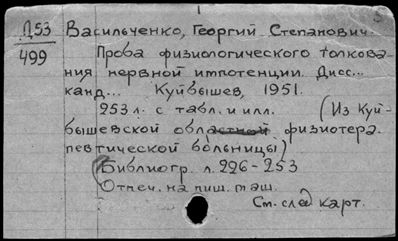 Д53 Васильченко, Георгий Степанович.
499 Проба физиологического толкова-
ния нервной импотенции. Дисс...
канд... Куйбышев, 1951.
253 л. с табл. и илл. (Из Куй-
бышевской областной физиотера-
певтической больницы)
Библиогр. л. 226-253
Отпеч. на пиш. маш.
См. след карт.